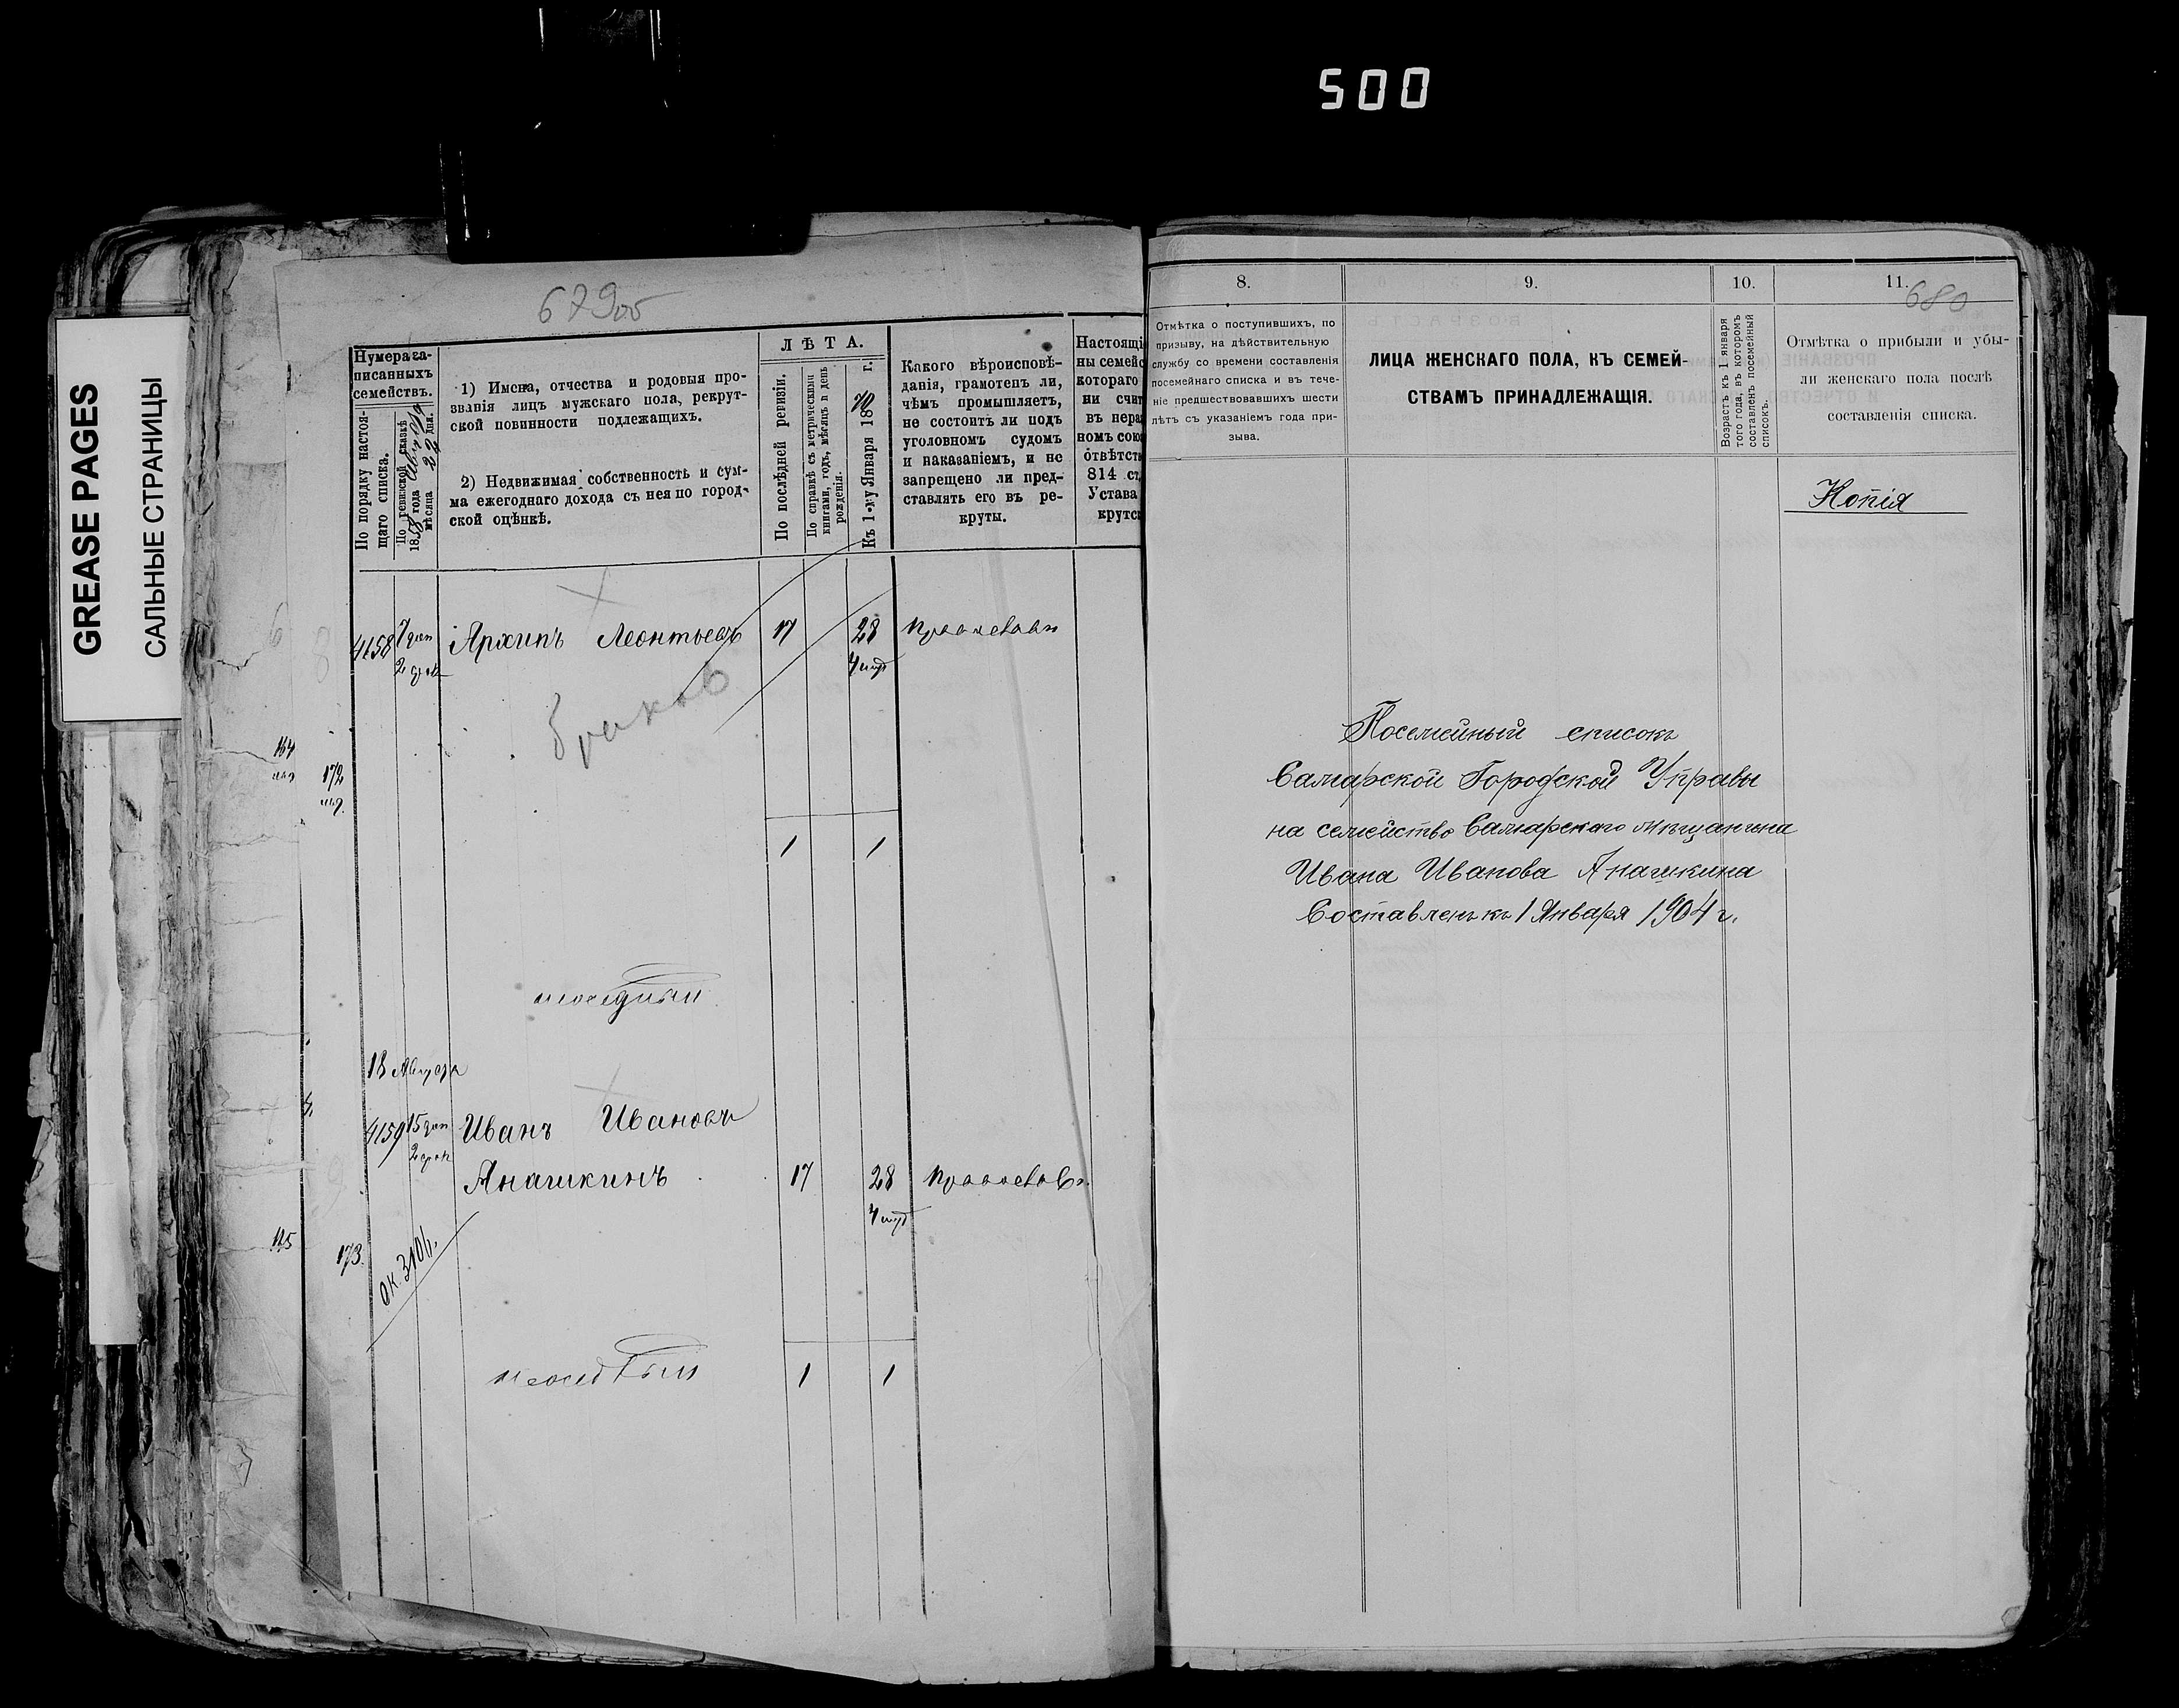 500
GREASE PAGES
САЛЬНЫЕ СТРАНИЦЫ
679об
Нумера за-
писанныхъ
семействъ.
По порядку настоя-
щаго списка.
По ревизской сказкѣ
1858 года
мѣсяца 22 дня.
1) Имена, отчества и родовыя про-
званія лицъ мужскаго пола, рекрут-
ской повинности подлежащихъ.
2) Недвижимая собственность и сум-
ма ежегоднаго дохода съ нея по город-
ской оцѣнкѣ.
ЛѢТА.
По послѣдней ревизіи.
По справкѣ съ метрическими
книгами, годъ, мѣсяцъ и день
рожденія.
Къ 1-му Января 1870 г.
Какого вѣроисповѣ-
данія, грамотенъ ли,
чѣмъ промышляетъ,
не состоитъ ли подъ
уголовномъ судомъ
и наказаніемъ, и не
запрещено ли пред-
ставлять его въ ре-
круты.
Настоящі
ны семейс
котораго
ни счит
въ нераз
номъ сою
отвѣтств
814 ст.
Устава
крутск
4158
Архипъ Леонтьевъ 17 28
164
172
1 1
18 Августа
4159 Иванъ Ивановъ
Анашкинъ 17 28
173.
1 1
8. 9. 10. 11.
680
Отмѣтка о поступившихъ, по
призыву, на дѣйствительную
службу со времени составленія
посемейнаго списка и въ тече-
ніе предшествовавшихъ шести
лѣтъ съ указаніемъ года при-
зыва.
ЛИЦА ЖЕНСКАГО ПОЛА, КЪ СЕМЕЙ-
СТВАМЪ ПРИНАДЛЕЖАЩІЯ.
Возрастъ къ 1 января
того года, въ которомъ
составленъ посемейный
списокъ.
Отмѣтка о прибыли и убы-
ли женскаго пола послѣ
составленія списка.
Копія
Посемейный списокъ
Самарской Городской Управы
на семейство Самарскаго мѣщанина
Ивана Иванова Анашкина
Составленъ къ 1 Января 1904 г.